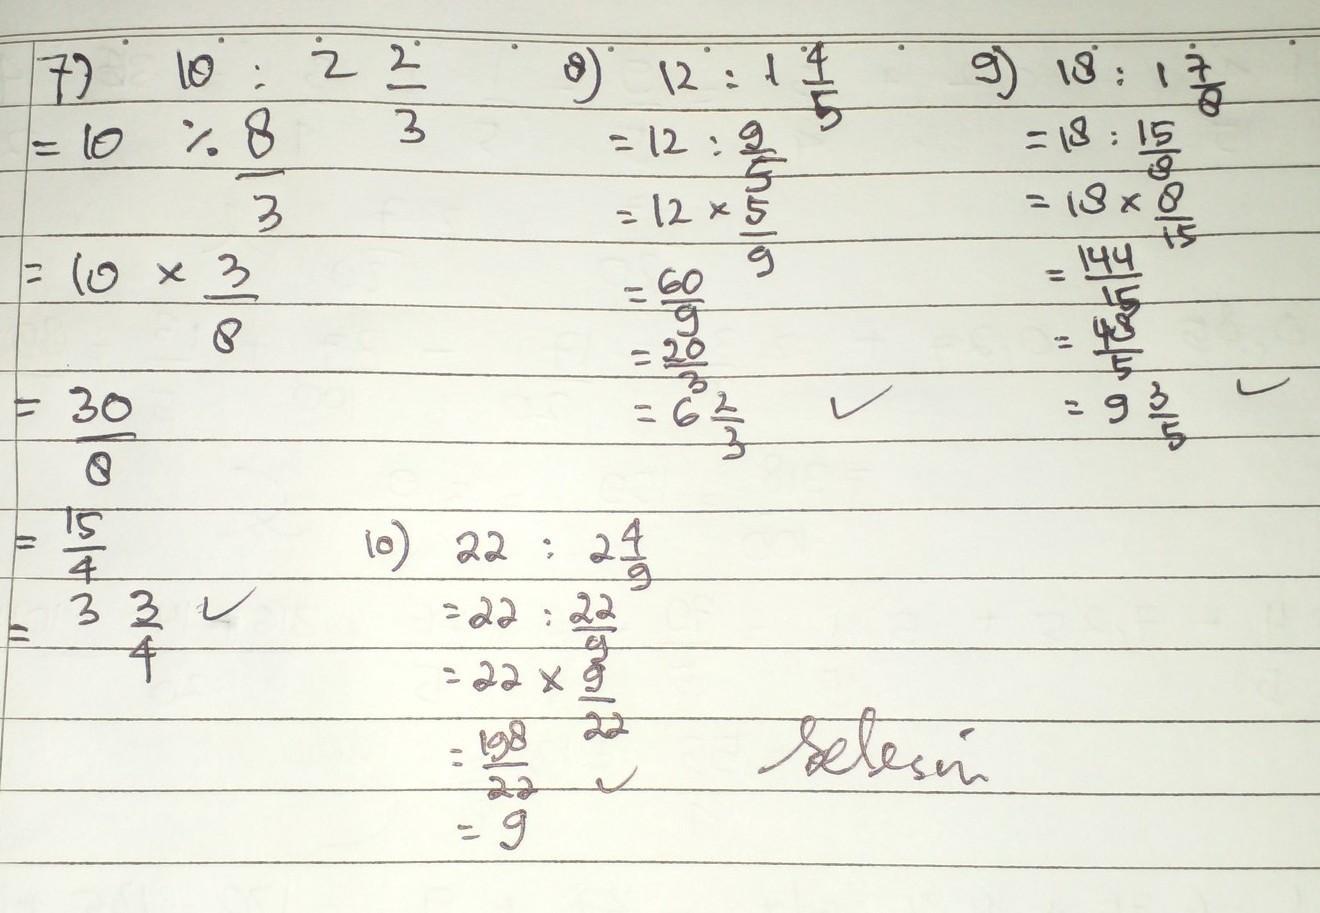 7) 10 : 2 2/3
= 10 : 8/3
= 10 × 3/8
= 30/8
= 15/4
= 3 3/4 ✓
8) 12 : 1 4/5
= 12 : 9/5
= 12 × 5/9
= 60/9
= 20/3
= 6 2/3 ✓
9) 18 : 1 7/8
= 18 : 15/8
= 18 × 8/15
= 144/15
= 48/5
= 9 3/5 ✓
10) 22 : 2 4/9
= 22 : 22/9
= 22 × 9/22
= 198/22 ✓
= 9
Selesai